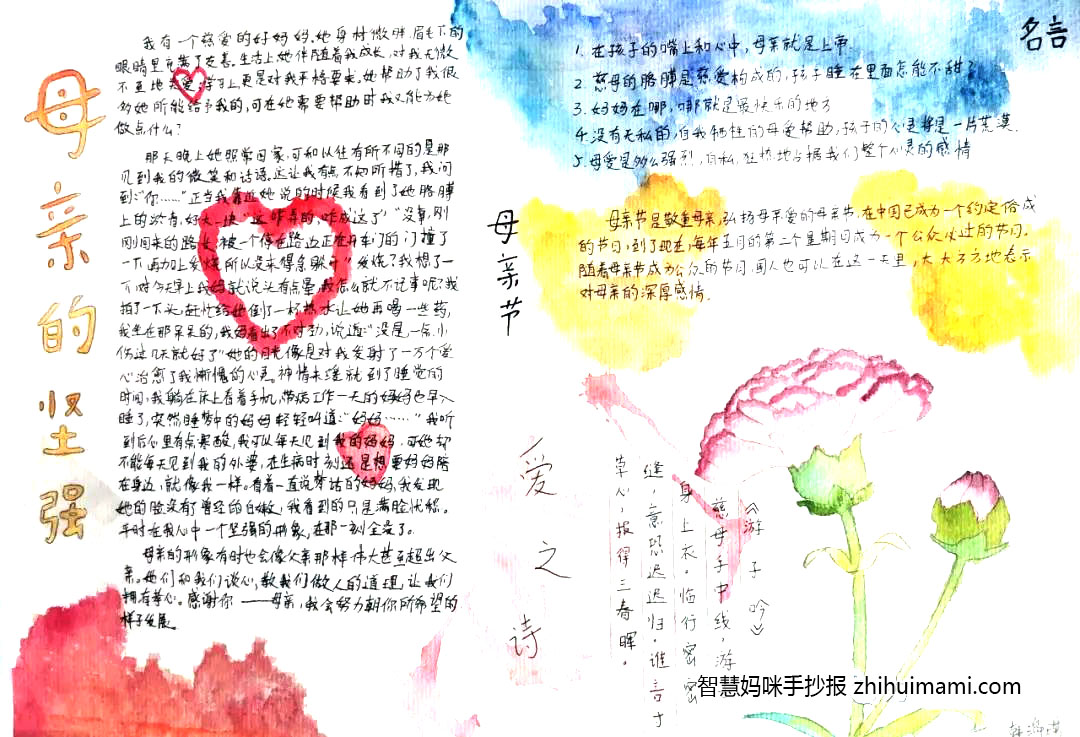 母亲的坚强
我有一个慈爱的好妈妈.她身材微胖.眉毛下的
眼睛里充满了友善.生活上她伴随着我成长,对我无微
不至地关爱;学习上更是对我严格要求。她帮助了我很
多她所能给予我的,可在她需要帮助时我又能为她
做点什么?
那天晚上她照常回家,可和以往有所不同的是那
见到我的微笑和话语。这让我有点不知所措了,我问
到:"你……"正当我靠近她说的时候我看到了她胳膊
上的淤青,好大一块"这咋弄的,咋成这了""没事,刚
刚回来的路上,被一个停在路边正在开车门的门撞了
一下,再加上发烧所以没来得急躲开"发烧?我想了一
下,对今天早上我妈就说头有点晕,我怎么就不记事呢?我
拍了一下头,赶忙给她倒了一杯热水让她再喝一些药,
我坐在那呆呆的,我妈看出了不对劲,说道:"没是,一点小
伤这几天就好了"她的目光像是对我发射了一万个爱
心治愈了我惭愧的心灵。神情未逢就到了睡觉的
时间,我躺在床上看着手机,带病工作一天的妈妈也早入
睡了,突然睡梦中的妈妈轻轻叫道:"妈妈……"我听
到后心里有点寒酸,我可以每天见到我的妈妈,可她却
不能每天见到我的外婆,在生病时刻还是想要妈妈陪
在身边,就像我一样。看着一直说梦话的妈妈,我发现
她的脸没有了曾经的白嫩,我看到的只是满脸忧愁。
平时在我心中一个坚强的形象,在那一刻全没了。
母亲的形象有时也会像父亲那样伟大甚至超出父
亲。她们和我们谈心,教我们做人的道理,让我们
拥有孝心。感谢你——母亲,我会努力朝你所希望的
样子发展。
名言
1. 在孩子的嘴上和心中,母亲就是上帝.
2. 慈母的胳膊是慈爱构成的,孩子睡在里面怎能不甜?
3. 妈妈在哪,哪就是最快乐的地方
4. 没有无私的,自我牺牲的母爱帮助,孩子的心灵将是一片荒漠.
5. 母爱是多么强烈,自私,狂热地占据我们整个心灵的感情
母亲节
母亲节是敬重母亲,弘扬母亲爱的母亲节,在中国已成为一个约定俗成
的节日,到了现在,每年五月的第二个星期日成为一个公众必过的节日.
随着母亲节成为公众的节日,国人也可以在这一天里,大大方方地表示
对母亲的深厚感情.
爱之诗
《游子吟》
慈母手中线,游
身上衣。临行密密
缝,意恐迟迟归。谁言寸
草心,报得三春晖。
智慧妈咪手抄报 zhihuimami.com